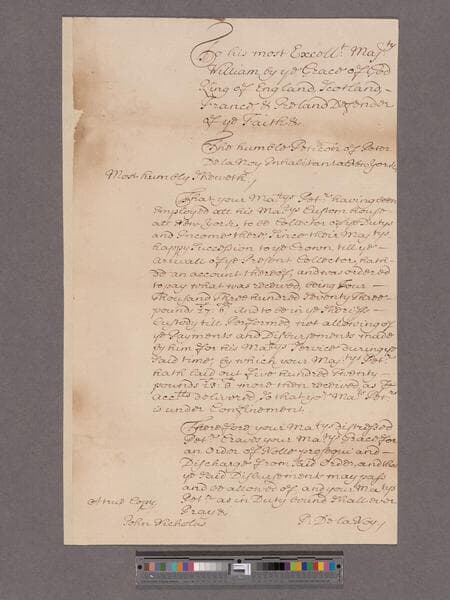 To his most Excell.t Maj.ty
William by ye Grace of God
King of England, Scotland,
France, & Ireland Defender
of ye Faith &
The humble Petic̃on of Peter
De la Noy Inhabitant at New York
Most humbly Sheweth /
That your Ma.tys Pet.r having been
employed att his Ma.tys Custom house
att New York to be Collector of ye Dutys
and Income there, since their Ma.tys
happy Succession to ye Crown till ye
arrivall of ye Present Collector, hath
an account thereof, and was ordered
to pay what was received, being four
Thousand Three hundred Seventy three
pound And to be in the Sheriffs
Custody till Performed, not allowing of
ye Payments and Disbursements made
by him for his Ma.tys Service during ye
said time, by which your Maj.tys Pet.r
hath laid out five hundred twenty
pounds more then received, as
acc.ts delivered, so that yo.r Ma.tys Pet.r
is under Confinement
Therefore your Ma.tys distressed
Pet.r Craves your Ma.tys Grace for
an Order of Nolle prosequi and
Discharge from said Order, and that
ye said Disbursement may pass
and be allowed of, and your Ma.tys
Pet.r as in Duty bound shall ever
Pray &
A true Copy
John Nicholls
P. De la Noy /